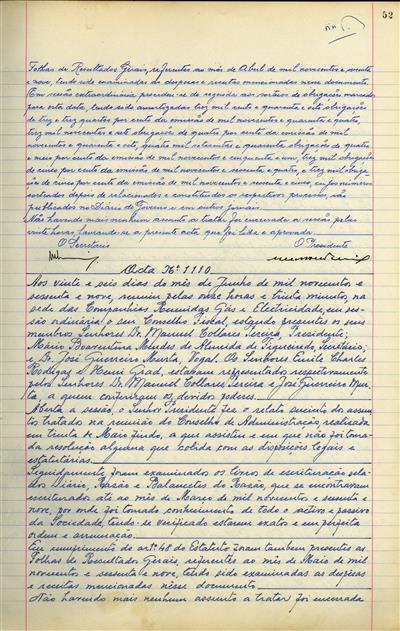 52
Folhas de Resultados Gerais, referentes ao mês de Abril de mil novecentos e sessenta
e nove, tendo sido examinadas as despesas e receitas mencionadas nesse documento.
Em sessão extraordinária procedeu-se de seguida aos sorteios de obrigações marcados
para esta data, tendo sido amortizadas três mil cento e quarenta e oito obrigações
de três e três quartos por cento da emissão de mil novecentos e quarenta e quatro,
três mil novecentos e sete obrigações de quatro por cento da emissão de mil
novecentos e quarenta e oito, quatro mil setecentas e quarenta obrigações de quatro
e meio por cento da emissão de mil novecentos e cinquenta e um, três mil obrigações
de cinco por cento da emissão de mil novecentos e sessenta e quatro, e três mil obriga-
ções de cinco por cento da emissão de mil novecentos e sessenta e cinco, cujos números
sorteados depois de relacionados e constituídos os respectivos processos, vão
ser publicados no Diário do Governo e em outros jornais.
Não havendo mais nenhum assunto a tratar foi encerrada a sessão pelas
vinte horas, lavrando-se a presente acta que foi lida e aprovada.
O Secretário O Presidente
Acta Nº 1110.
Aos vinte e seis dias do mês de Junho de mil novecentos e
sessenta e nove, reuniu pelas onze horas e trinta minutos, na
sede das Companhias Reunidas Gás e Electricidade, em ses-
são ordinária o seu Conselho Fiscal, estando presentes os seus
membros Senhores Dr. Manuel Collares Pereira, Presidente;
Mário Boaventura Mendes de Almeida de Figueiredo, Secretário;
e Dr. José Guerreiro Murta, Vogal. Os Senhores Emile Charles
Rodrigas e Henri Grad, estavam representados respectivamente
pelos Senhores Dr. Manuel Collares Pereira e José Guerreiro Mur-
ta, a quem conferiram os devidos poderes.
Aberta a sessão, o Senhor Presidente fez o relato sucinto dos assun-
tos tratados na reunião do Conselho de Administração, realizada
em trinta de Maio findo, a que assistiu e em que não foi toma-
da resolução alguma que colida com as disposições legais e
estatutárias.
Seguidamente foram examinados os livros de escrituração sela-
dos Diário, Razão e Balancetes do Razão, que se encontravam
escriturados até ao mês de Março de mil novecentos e sessenta e
nove, por onde foi tomado conhecimento de todo o activo e passivo
da Sociedade, tendo-se verificado estarem exatos e em perfeita
ordem e arrumação.
Em cumprimento do artº 40 do Estatuto foram também presentes as
Folhas de Resultados Gerais, referentes ao mês de Maio de mil
novecentos e sessenta e nove, tendo sido examinadas as despesas
e receitas mencionadas nesse documento.
Não havendo mais nenhum assunto a tratar foi encerrada